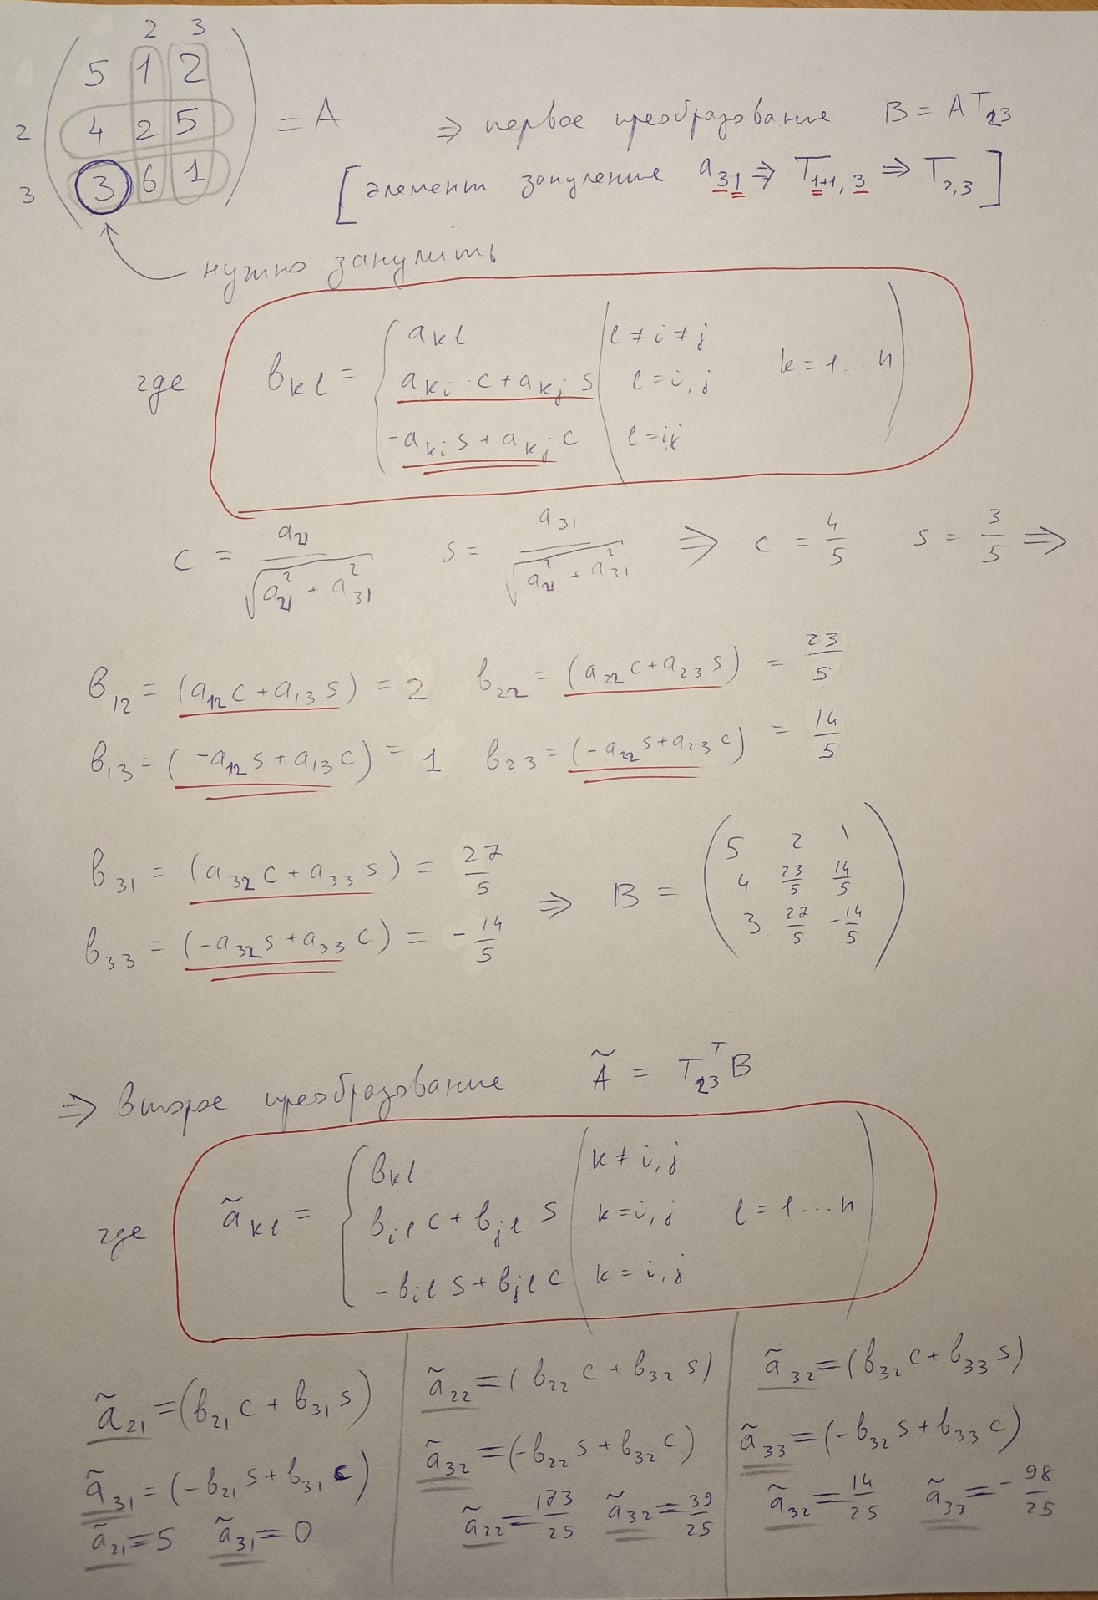 2 3
5 1 2
2 4 2 5 = A ⇒ первое преобразование B = A T₂₃
3 3 6 1 [элемент зануление a₃₁ ⇒ T₁₊₁,₃ ⇒ T₂,₃]
нужно занулить
где bₖₗ = { aₖₗ | l ≠ i ≠ j
aₖᵢ · c + aₖⱼ s | l = i, j k = 1 ... n
-aₖᵢ s + aₖⱼ c | l = ij
c = a₂₁ / √(a₂₁² + a₃₁²) s = a₃₁ / √(a₂₁² + a₃₁²) ⇒ c = 4/5 s = 3/5 ⇒
b₁₂ = (a₁₂c + a₁₃ s) = 2 b₂₂ = (a₂₂ c + a₂₃ s) = 23/5
b₁₃ = (-a₁₂ s + a₁₃ c) = 1 b₂₃ = (-a₂₂ s + a₂₃ c) = 14/5
b₃₁ = (a₃₂ c + a₃₃ s) = 27/5
b₃₃ = (-a₃₂ s + a₃₃ c) = -14/5
⇒ B =
5 2 1
4 23/5 14/5
3 27/5 -14/5
⇒ второе преобразование Ã = T₂₃ᵀ B
где ãₖₗ = { bₖₗ | k ≠ i, j
bᵢₗ c + bⱼₗ s | k = i, j l = 1 ... n
-bᵢₗ s + bⱼₗ c | k = i, j
ã₂₁ = (b₂₁ c + b₃₁ s)
ã₃₁ = (-b₂₁ s + b₃₁ c)
ã₂₁ = 5 ã₃₁ = 0
ã₂₂ = (b₂₂ c + b₃₂ s)
ã₃₂ = (-b₂₂ s + b₃₂ c)
ã₂₂ = 173/25 ã₃₂ = 39/25
ã₃₂ = (b₃₂ c + b₃₃ s)
ã₃₃ = (-b₃₂ s + b₃₃ c)
ã₃₂ = 14/25 ã₃₃ = -98/25